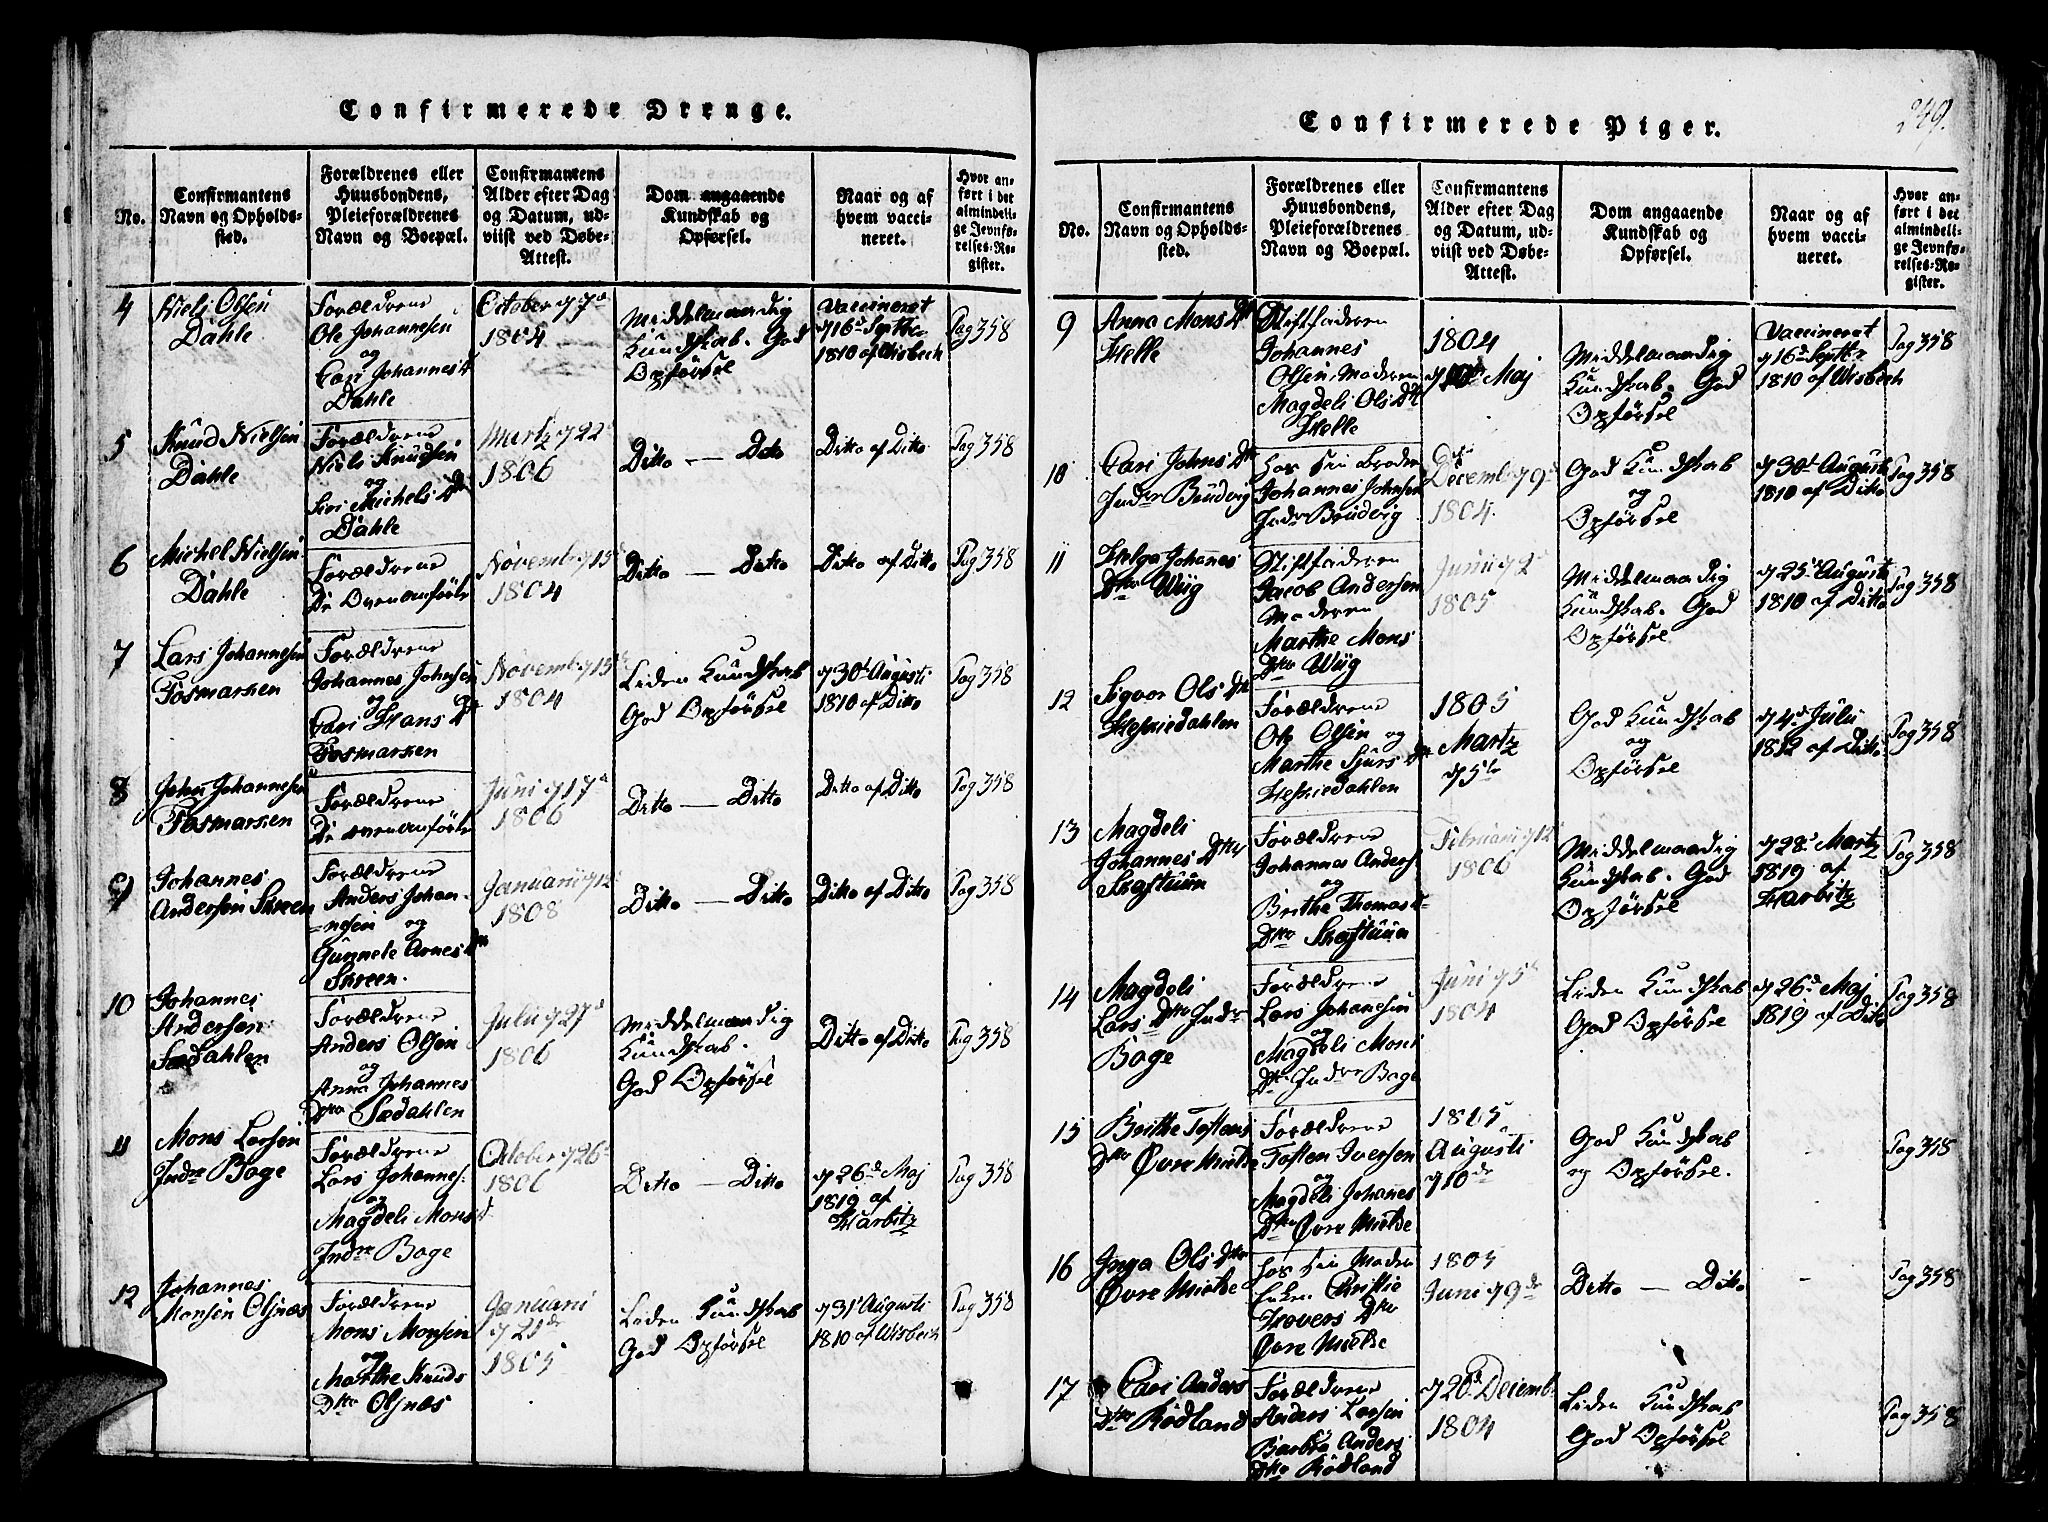 Confirmerede Drenge.
No.
Confirmantens
Navn og Opholds-
sted.
Forældrenes eller
Huusbondens,
Pleieforældrenes
Navn og Boepæl.
Confirmantens
Alder efter Dag
og Datum, ud-
viist ved Døbe-
Attest.
Dom angaaende
Kundskab og
Opførsel.
Naar og af
hvem vacci-
neret.
Hvor an-
ført i det
almindeli-
ge Jevnfø-
relses-Re-
gister.
4
Niels Olsen
Dahle
Forældrene
Ole Johannesen
og
Cari Johannes D
Dahle
October 7
1804
Middelmaadig
Kundskab. God
Opførsel
Vaccineret
d 16 Septbr
1810 af Wisbech
Pag 358
5
Knud Nielsen
Dahle
Forældrene
Niels Knudsen
og
Siri Michels Dtr
Dahle
Martz d 22
1806
Ditto — Ditto
Ditto af Ditto
Pag 358
6
Michel Nielsen
Dahle
Forældrene
De Ovenanførte
Novemb d 15
1804
Ditto — Ditto
Ditto af Ditto
Pag 358
7
Lars Johannesen
Fosmarken
Forældrene
Johannes Johnsen
og
Cari Hans Dtr
Fosmarken
Novemb d 15
1804
Liden Kundskab
God Opførsel
d 30 Augusti
1810 af Ditto
Pag 358
8
John Johannesen
Fosmarken
Forældrene
De ovenanførte
Juni d 17
1806
Ditto — Ditto
Ditto af Ditto
Pag 358
9
Johannes
Andersen Skreen
Forældrene
Anders Johan-
=nesen og
Gunnele Arnes D
Skreen.
Januarii d 12
1808
Ditto — Ditto
Ditto af Ditto
Pag 358
10
Johannes
Andersen
Sædahlen
Forældrene
Anders Olsen
og
Anna Johannes
Dtr Sædahlen
Julii d 27
1806
Middelmaadig
Kundskab.
God Opførsel
Ditto af Ditto
Pag 358
11
Mons Larsen
Indre Boge
Forældrene
Lars Johannes:
og
Magdeli Mons D
Indre Boge
October d 26
1806
Ditto — Ditto
d 26 Maj
1819 af
Harbitz
Pag 358
12
Johannes
Monsen Olsnæs
Forældrene
Mons Monsen
og
Marthe Knuds
Dtr Olsnæs
Januarii
d 21de
1805
Liden Kundskab
God Opførsel
d 31 Augusti
1810 af Wisbech
Pag 358
249.
Confirmerede Piger.
No.
Confirmantens
Navn og Opholds-
sted.
Forældrenes eller
Huusbondens,
Pleieforældrenes
Navn og Boepæl.
Confirmantens
Alder efter Dag
og Datum, ud-
viist ved Døbe-
Attest.
Dom angaaende
Kundskab og
Opførsel.
Naar og af
hvem vacci-
neret.
Hvor an-
ført i det
almindeli-
ge Jevnfø-
relses-Re-
gister.
9
Anna Mons Dtr
Helle
Stiffaderen
Johannes
Olsen, Moderen
Magdeli Ols Dtr
Helle
1804
Maj
Middelmaadig
Kundskab. God
Opførsel
Vaccineret
d 16 Septbr
1810 af Wisbech
Pag 358
10
Cari Johns Dtr
Indre Brudvig
hos sin Broder
Johannes Johnsen
Indre Brudvig
Decemb d 9
1804.
God Kundskab
og
Opførsel
d 30 Augusti
1810 af Ditto
Pag 358
11
Helga Johannes
Dtr Wiig
Stiffaderen
Jacob Andersen
Moderen
Marthe Mons
Dtr Wiig
Junii d 2
1805
Middelmaadig
Kundskab. God
Opførsel
d 25 Augusti
1810 af Ditto
Pag 358
12
Sigvor Ols Dtr
Hesjedahlen
Forældrene
Ole Olsen og
Marthe Sjurs Dtr
Hesjedahlen
1805
Martz
d 5te
God Kundskab
og
Opførsel
d 4 Julii
1812 af Ditto
Pag 358
13
Magdeli
Johannes Dtr
Skaftuun
Forældrene
Johannes Anders:
og
Brithe Thomas
Dtr Skaftuun
Februarii d 12
1806
Middelmaadig
Kundskab. God
Opførsel
d 28 Martz
1819 af
Harbitz
Pag 358
14
Magdeli
Lars Dtr Indre
Boge
Forældrene
Lars Johannesen
og
Magdeli Mons
Dtr Indre Boge
Juni d 5
1804
Liden Kundskab
God Opførsel
d 26 Maj
1819 af Ditto
Pag 358
15
Brithe Tostens
Dtr Øvre Mielde
Forældrene
Tosten Iversen
og
Magdeli Johannes
Dtr Øvre Mielde
1805
Augusti
d 10de
God Kundskab
og Opførsel.
Pag 358
16
Inga Ols Dtr
Øvre Mielde
hos sin Moder
Enken Christie
Hovers Dtr
Øvre Mielde
1805
Juni d 9de
Ditto — Ditto
Pag 358
17
Cari Anders
Dtr Rødland
Forældrene
Anders Larsen
Barbra Anders
Dtr Rødland
d 26 Decemb
1804
Liden Kundskab
God Opførsel
Pag 358